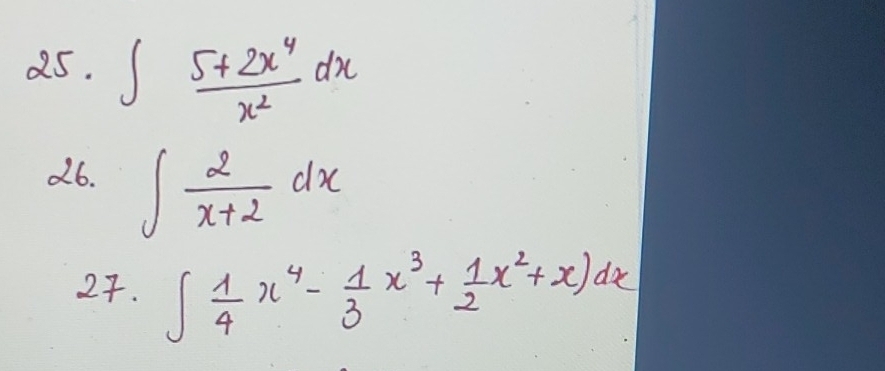 25. ∫ (5+2x⁴)/x² dx
26. ∫ 2/(x+2) dx
27. ∫ 1/4 x⁴ - 1/3 x³ + 1/2 x² + x) dx